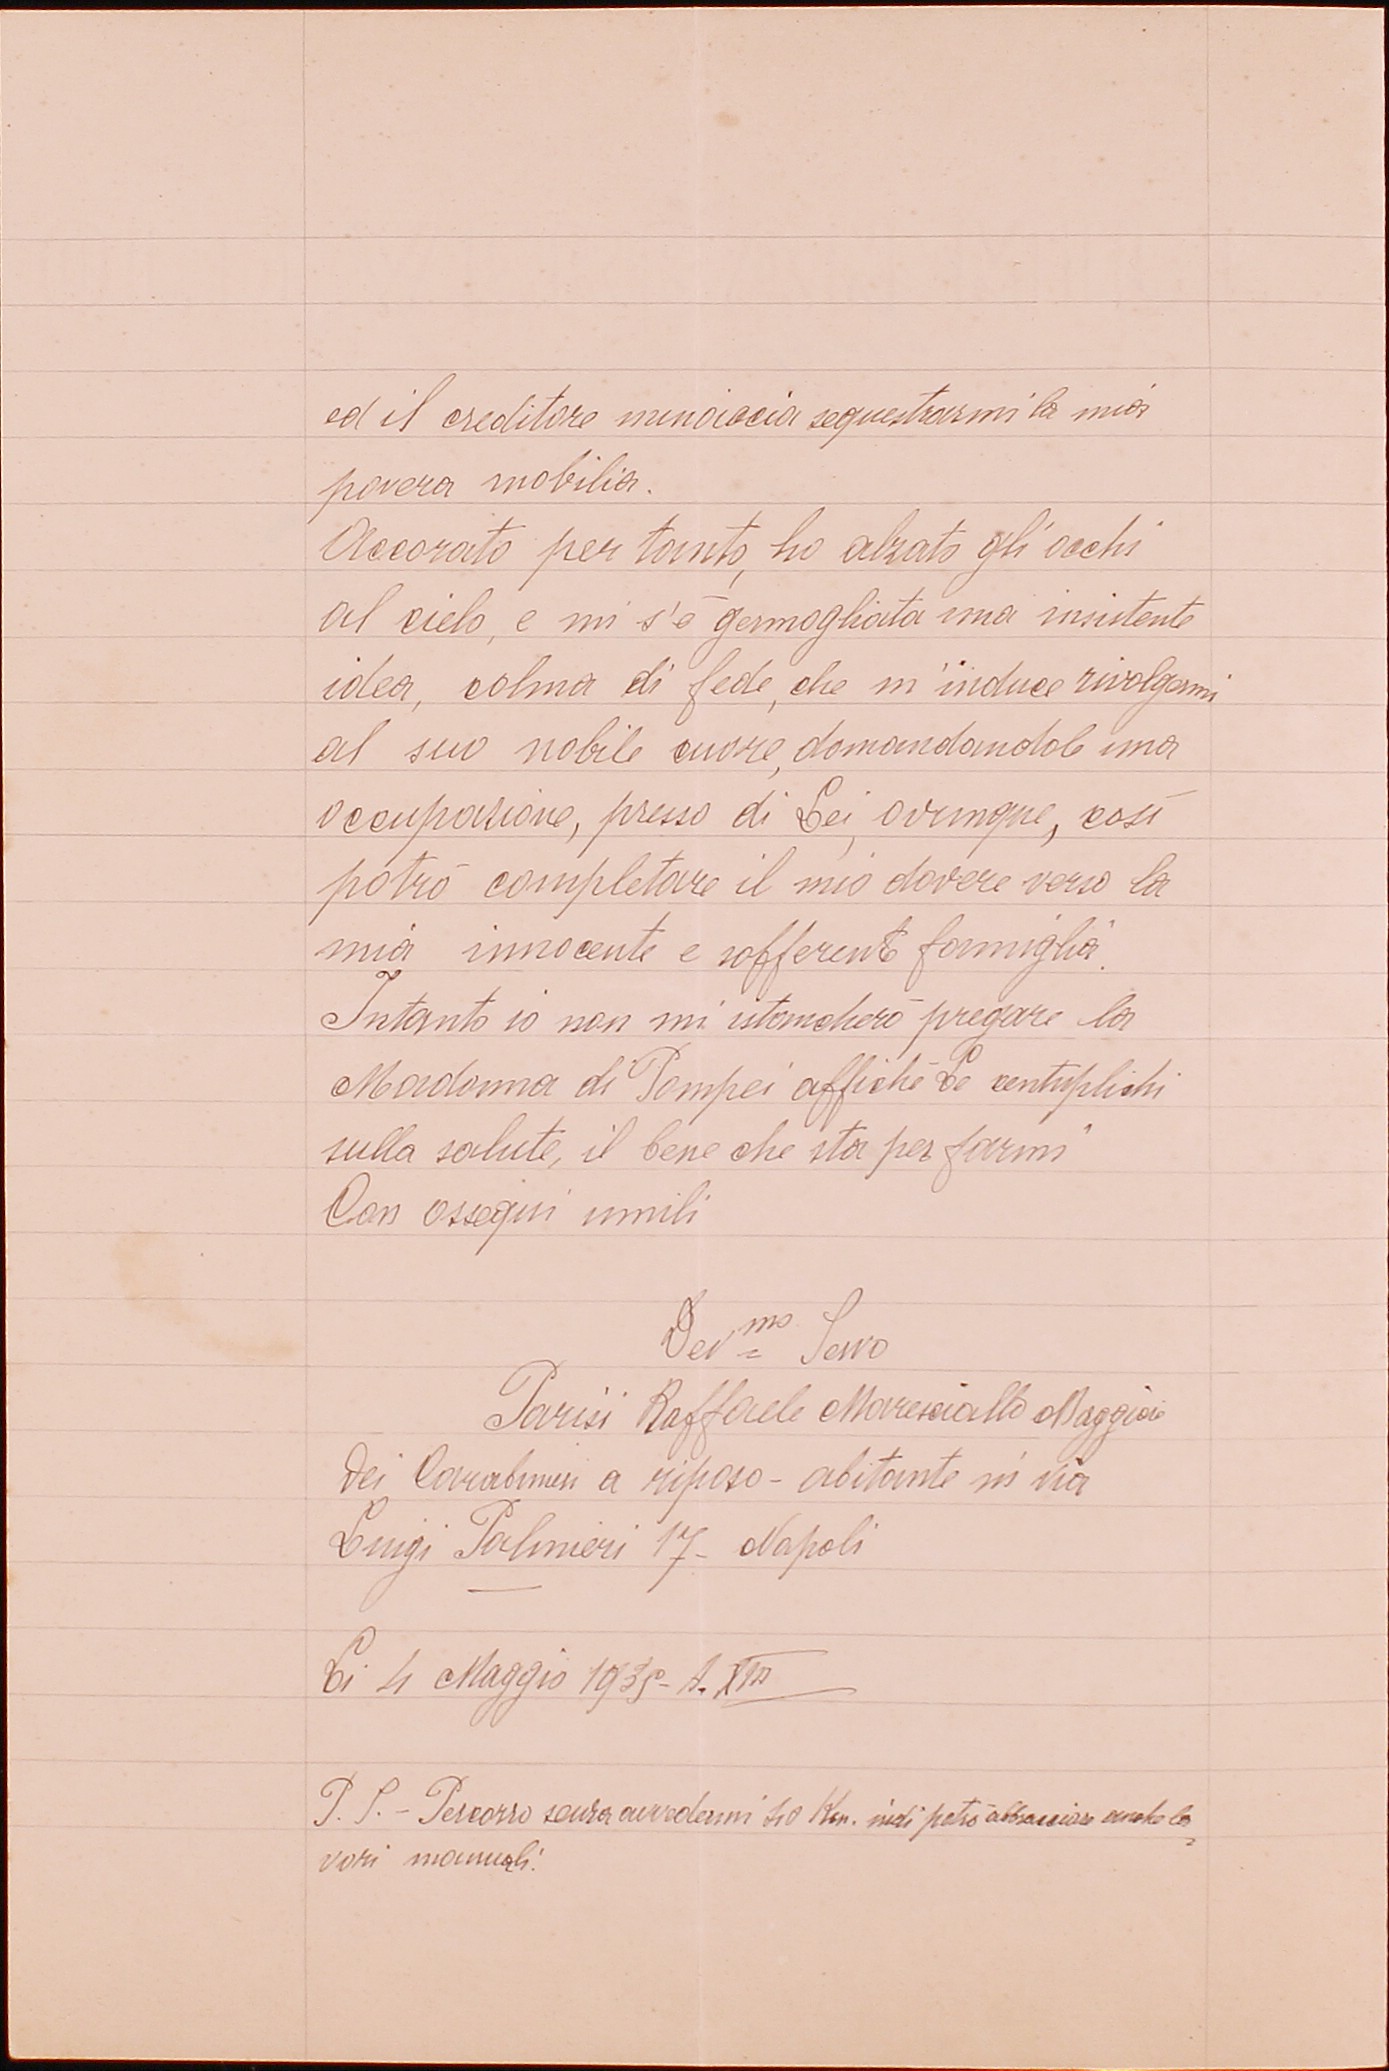 ed il creditore minaiccia sequestrarmi la mia
povera mobilia.
Accorato per tanto, ho alzato gli occhi
al cielo, e mi s'è germogliata una insistente
idea, colma di fede, che m'induce rivolgermi
al suo nobile cuore, domandandole una
occupazione, presso di Lei, ovunque, così
potrò completare il mio dovere verso la
mia innocente e sofferente famiglia.
Intanto io non mi stancherò pregare la
Madonna di Pompei affiché Le centuplichi
sulla salute, il bene che sta per farmi
Con ossequi umili
Dev.mo Servo
Parisi Raffaele Maresciallo Maggiore
dei Carabinieri a riposo - abitante in via
Luigi Palmieri 17 - Napoli
Li 4 Maggio 1935 - A. XIII
P. S. - Percorro senza avvedermi Km. indi potrò abbracciare anche la=
vori manuali.